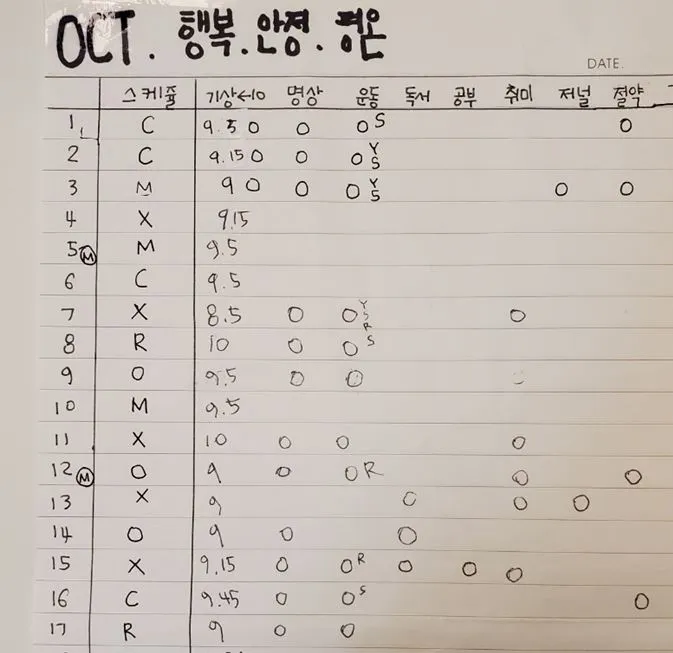 OCT. 행복. 안정. 평온
DATE.
스케쥴 기상←10 명상 운동 독서 공부 취미 저널 절약
1 C 9.5 O O O S O
2 C 9.15 O O O Y S
3 M 9 O O O Y S O O
4 X 9.15
5 M M 9.5
6 C 9.5
7 X 8.5 O O Y S R O
8 R 10 O O S
9 O 9.5 O O
10 M 9.5
11 X 10 O O O
12 M O 9 O O R O O
13 X 9 O O O
14 O 9 O O
15 X 9.15 O O R O O O
16 C 9.45 O O S O
17 R 9 O O